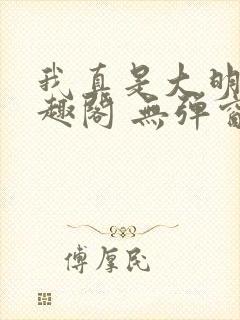 我真是大明
趣阁 無弹窗
傅厚民